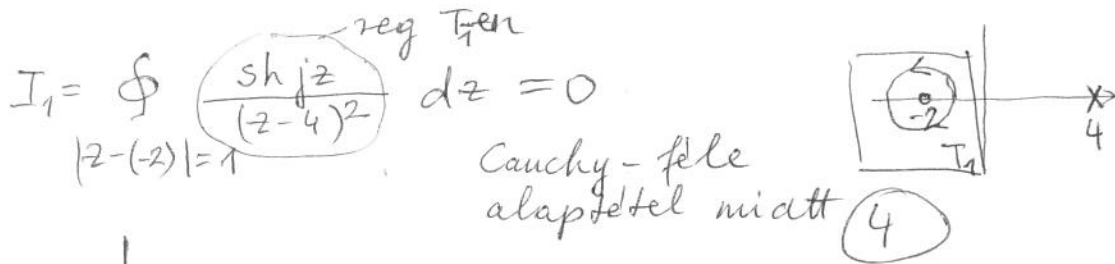 reg T₁-en
I₁ = ∮ sh jz / (z-4)² dz = 0
|z-(-2)|=1
Cauchy-féle
alaptétel miatt
4
-2
T₁
4